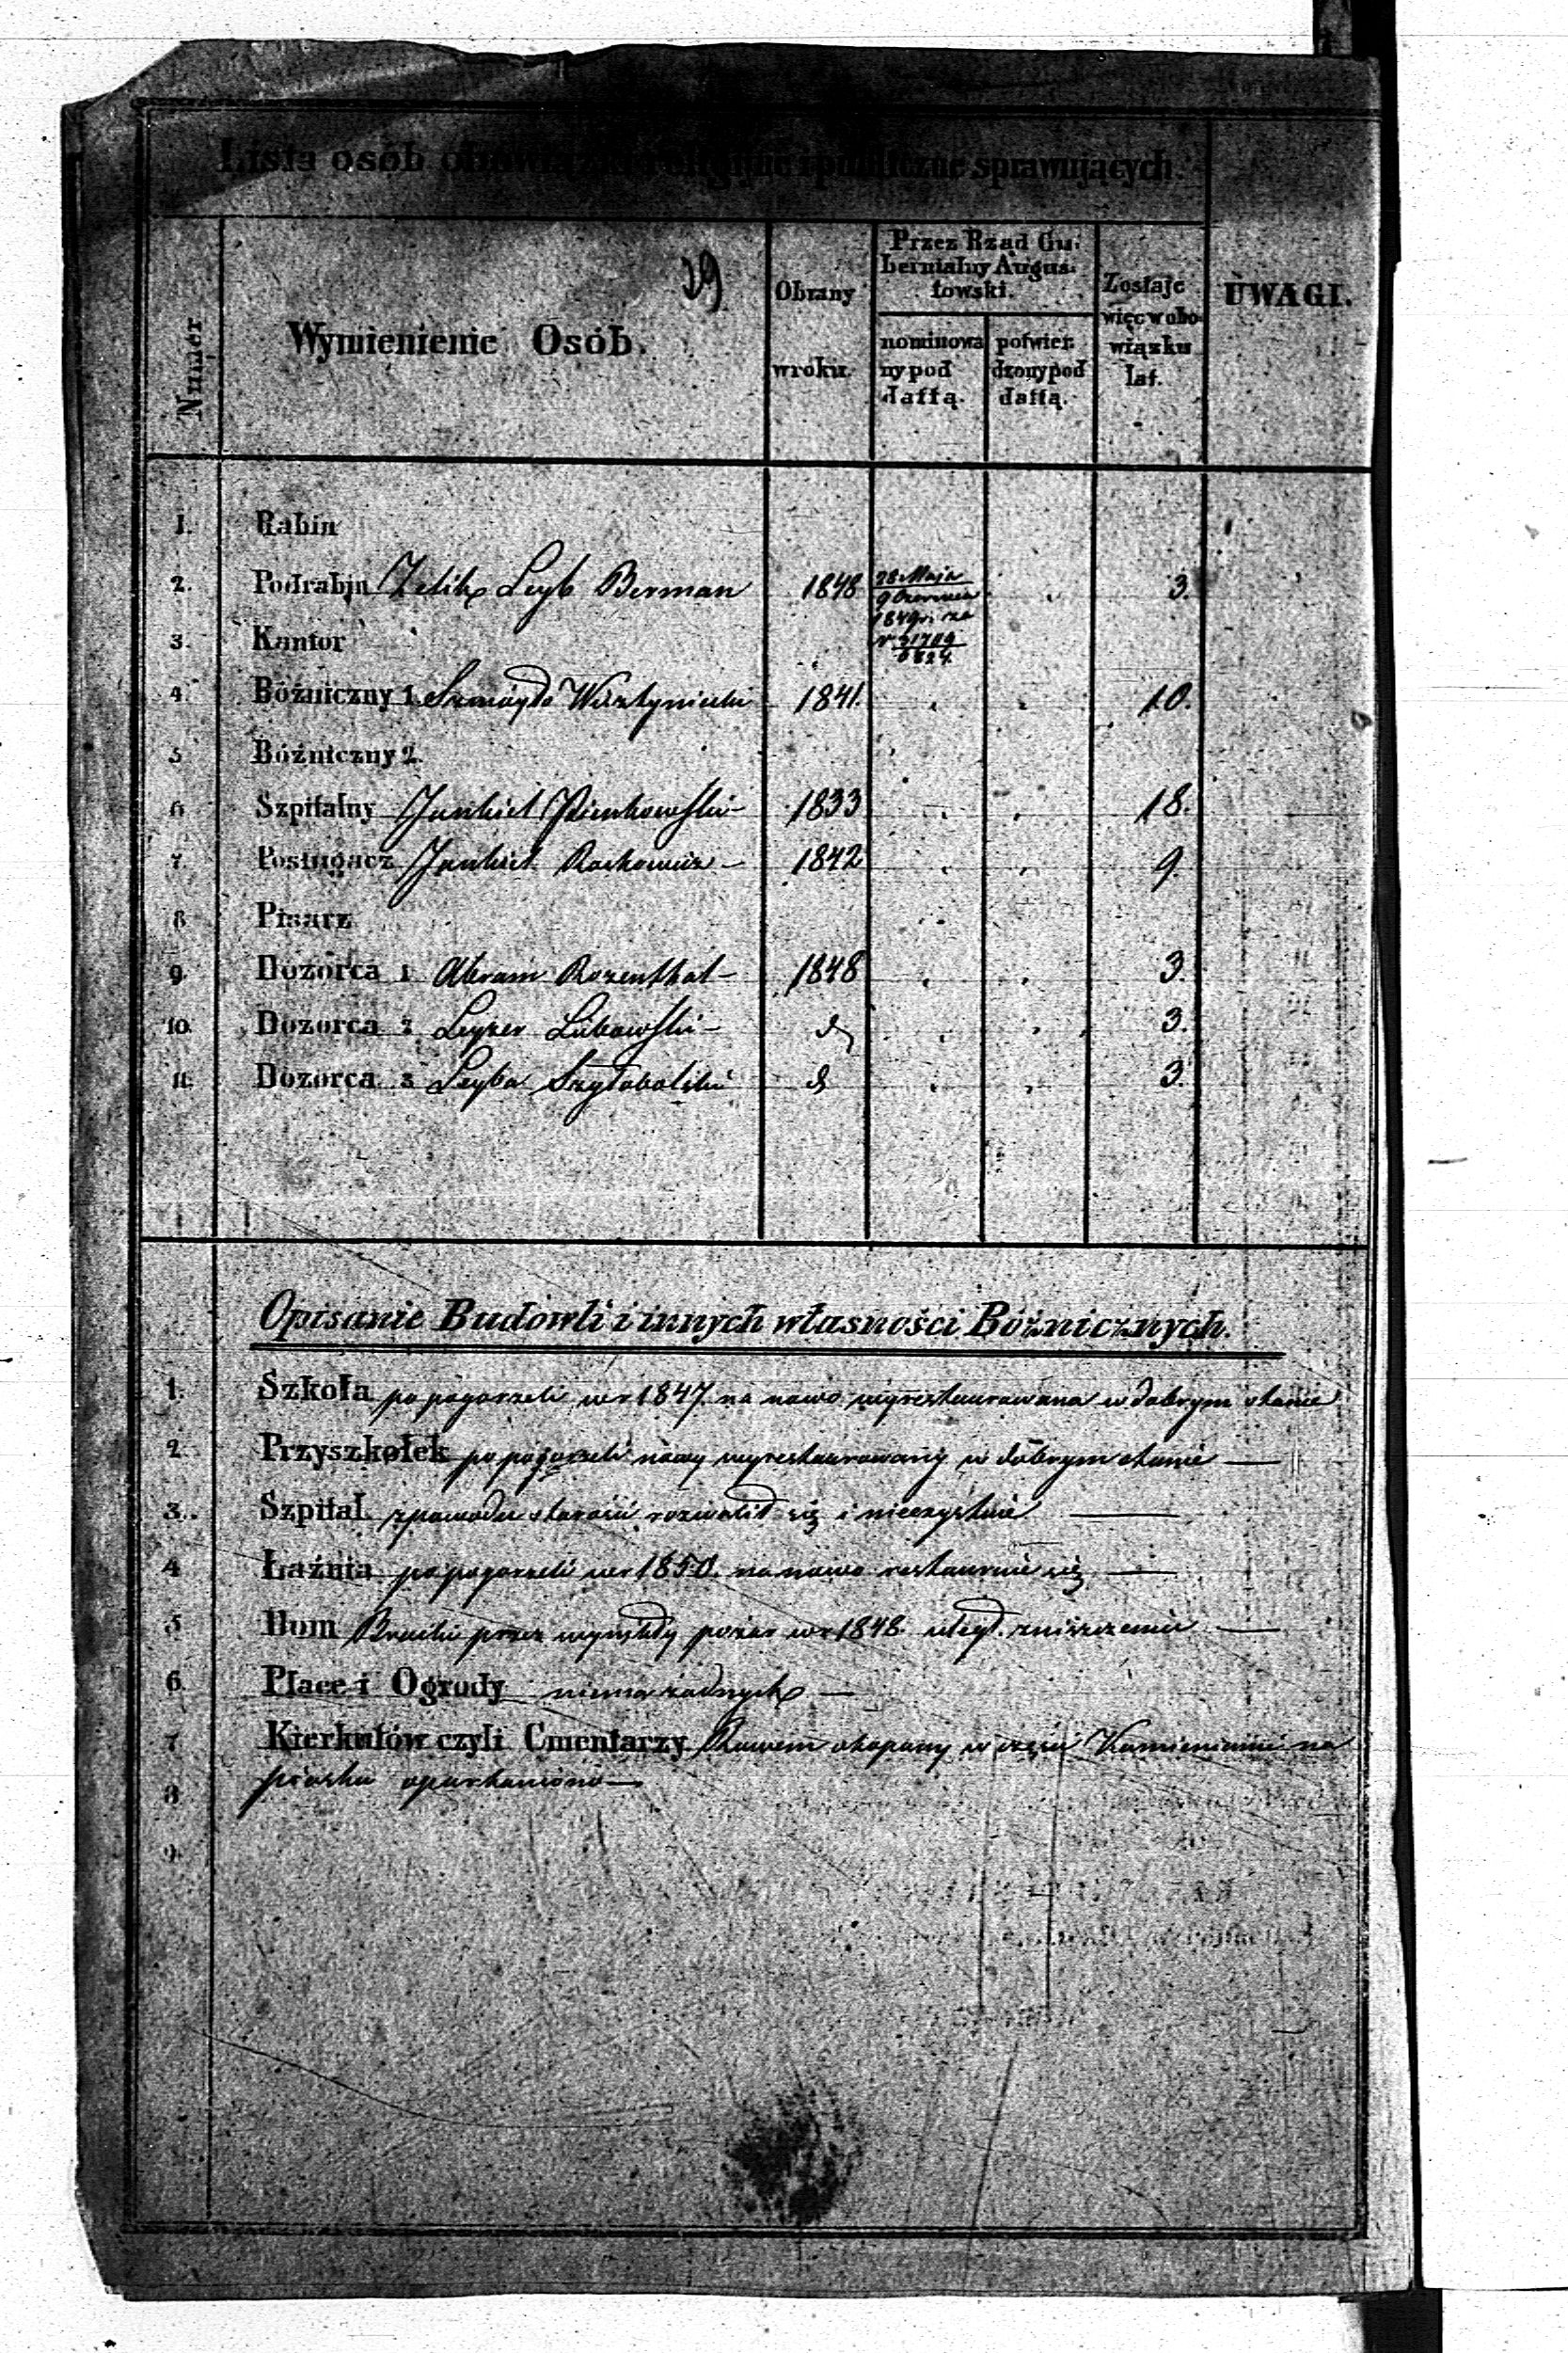 Lista osób obowiązki religijne i publiczne sprawujących.
29
Numer
Wymienienie Osób.
Obrany
w roku.
Przez Rząd Gu-
bernialny Augus-
towski.
nominowa
ny pod
dattą.
potwier
dzony pod
dattą.
Zostaje
więc w obo-
wiązku
lat.
UWAGI.
1. Rabin
2. Podrabin Zelik Leyb Berman 1848 28 Maja 3.
9 Czerwca
1849 r. za
3. Kantor № 31709
6824
4. Bóźniczny 1. Szmuyło Wisztyniecki 1841. 10.
5 Bóźniczny 2.
6 Szpitalny Jankiel Pienkowski 1833 18.
7. Posługacz Jankiel 1842 9.
8 Pisarz
9. Dozorca 1 Abram Rozenthal 1848 3.
10. Dozorca 2 Leyzer Lubowski 3.
11. Dozorca 3 Leyba 3.
Opisanie Budowli i innych własności Bóżnicznych.
1. Szkoła po pogorzeli w r 1847 na nowo wyrestaurowana w dobrym stanie
2. Przyszkołek po pogorzeli nowy wyrestaurowany w dobrym stanie
3. Szpital z powodu starości rozwalił się i nieexystuie
4 Łaźnia po pogorzeli w r 1850. na nowo restauruie się
5 Dom Bracki przez wynikły pożar w r 1848 uległ zniszczeniu
6. Place i Ogrody niema żadnych
7 Kierkułów czyli Cmentarzy Rowem okopany w części Kamieniami na
8 piasku oparkaniono
9.